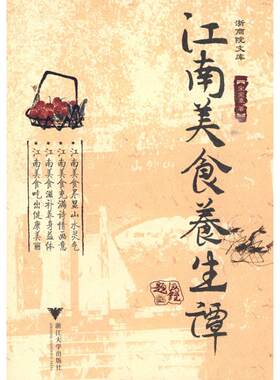 浙商院文库
江南美食養生譚
江南美食尽显山水灵气
江南美食充满诗情画意
江南美食滋补养身益体
江南美食吃出健康美丽
浙江大学出版社